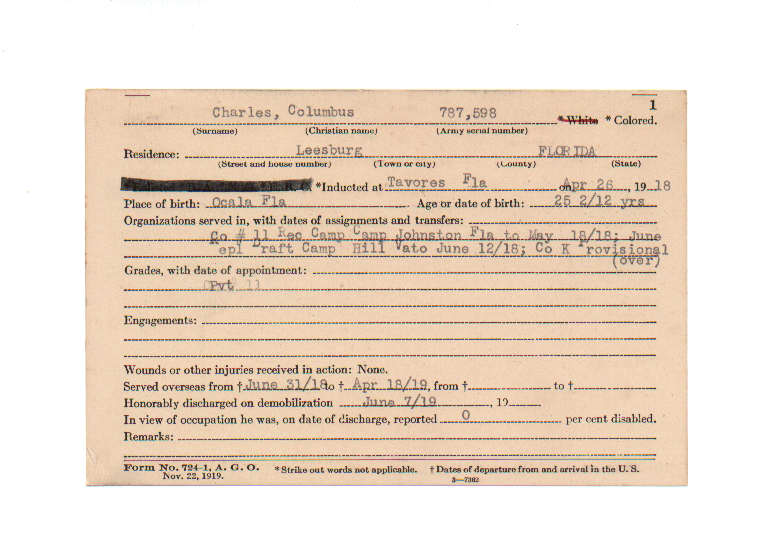 1
Charles, Columbus 787,598 * White * Colored.
(Surname) (Christian name) (Army serial number)
Residence: Leesburg FLORIDA
(Street and house number) (Town or city) (County) (State)
*Inducted at Tavores Fla on Apr 26, 19 18
Place of birth: Ocala Fla Age or date of birth: 25 2/12 yrs
Organizations served in, with dates of assignments and transfers:
Co # 11 Rec Camp Camp Johnston Fla to May 18/18; June
epl Draft Camp Hill Vato June 12/18; Co K rovisional
(over)
Grades, with date of appointment:
Pvt 11
Engagements:
Wounds or other injuries received in action: None.
Served overseas from † June 31/18 to † Apr 18/19, from † to †
Honorably discharged on demobilization June 7/19, 19
In view of occupation he was, on date of discharge, reported 0 per cent disabled.
Remarks:
Form No. 724-1, A. G. O. * Strike out words not applicable. † Dates of departure from and arrival in the U. S.
Nov. 22, 1919. 3—7382